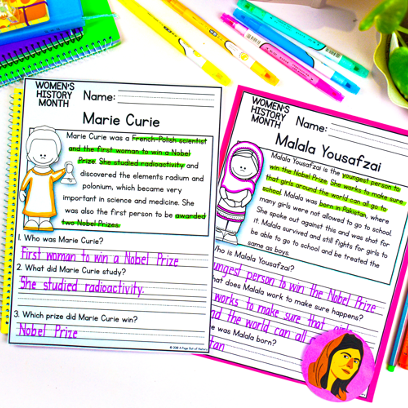 WOMEN'S
HISTORY
MONTH
Name:
Marie Curie
Marie Curie was a French-Polish scientist
and the first woman to win a Nobel
Prize. She studied radioactivity and
discovered the elements radium and
polonium, which became very
important in science and medicine. She
was also the first person to be awarded
two Nobel Prizes.
1. Who was Marie Curie?
First woman to win a Nobel Prize
2. What did Marie Curie study?
She studied radioactivity.
3. Which prize did Marie Curie win?
Nobel Prize
WOMEN'S
HISTORY
MONTH
Name:
Malala Yousafzai
Malala Yousafzai is the youngest person to
win the Nobel Prize. She works to make sure
that girls around the world can all go to
school. Malala was born in Pakistan, where
many girls were not allowed to go to school.
She spoke out against this and was shot for
it. Malala survived and still fights for girls to
be able to go to school and be treated the
same as boys.
ho is Malala Yousafzai?
ungest person to win the Nobel Prize
hat does Malala work to make sure happens?
works to make sure that
nd the world can all
e was Malala born?
tan